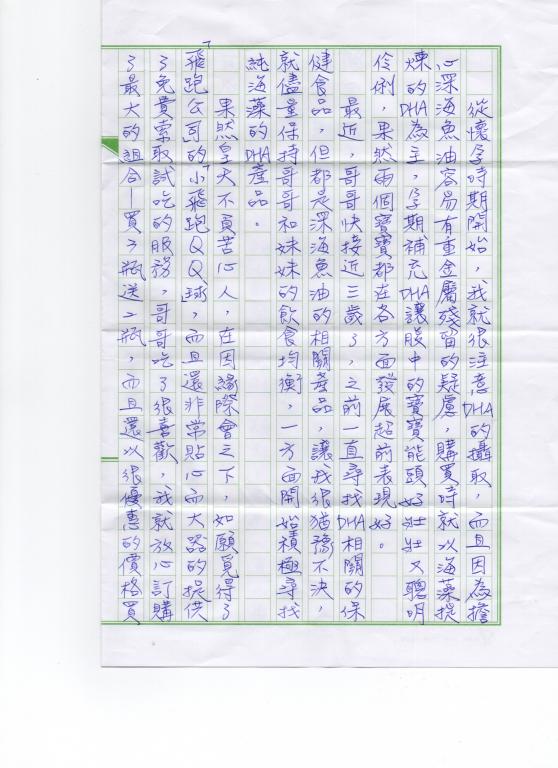 從懷孕時期開始，我就很注意DHA的攝取，而且因為擔
心深海魚油容易有重金屬殘留的疑慮，購買時就以海藻提
煉的DHA為主，孕期補充DHA讓腹中的寶寶能頭好壯壯又聰明
伶俐，果然兩個寶寶都在各方面發展超前表現好。
最近，哥哥快接近三歲了，之前一直尋找DHA相關的保
健食品，但都是深海魚油的相關產品，讓我很猶豫不決，
就儘量保持哥哥和妹妹的飲食均衡，一方面開始積極尋找
純海藻的DHA產品。
果然皇天不負苦心人，在因緣際會之下，如願覓得了
飛跑公司的「小飛跑QQ球」，而且還非常貼心而大器的提供
了免費索取試吃的服務，哥哥吃了很喜歡，我就放心訂購
了最大的組合—買3瓶送2瓶，而且還以很優惠的價格買